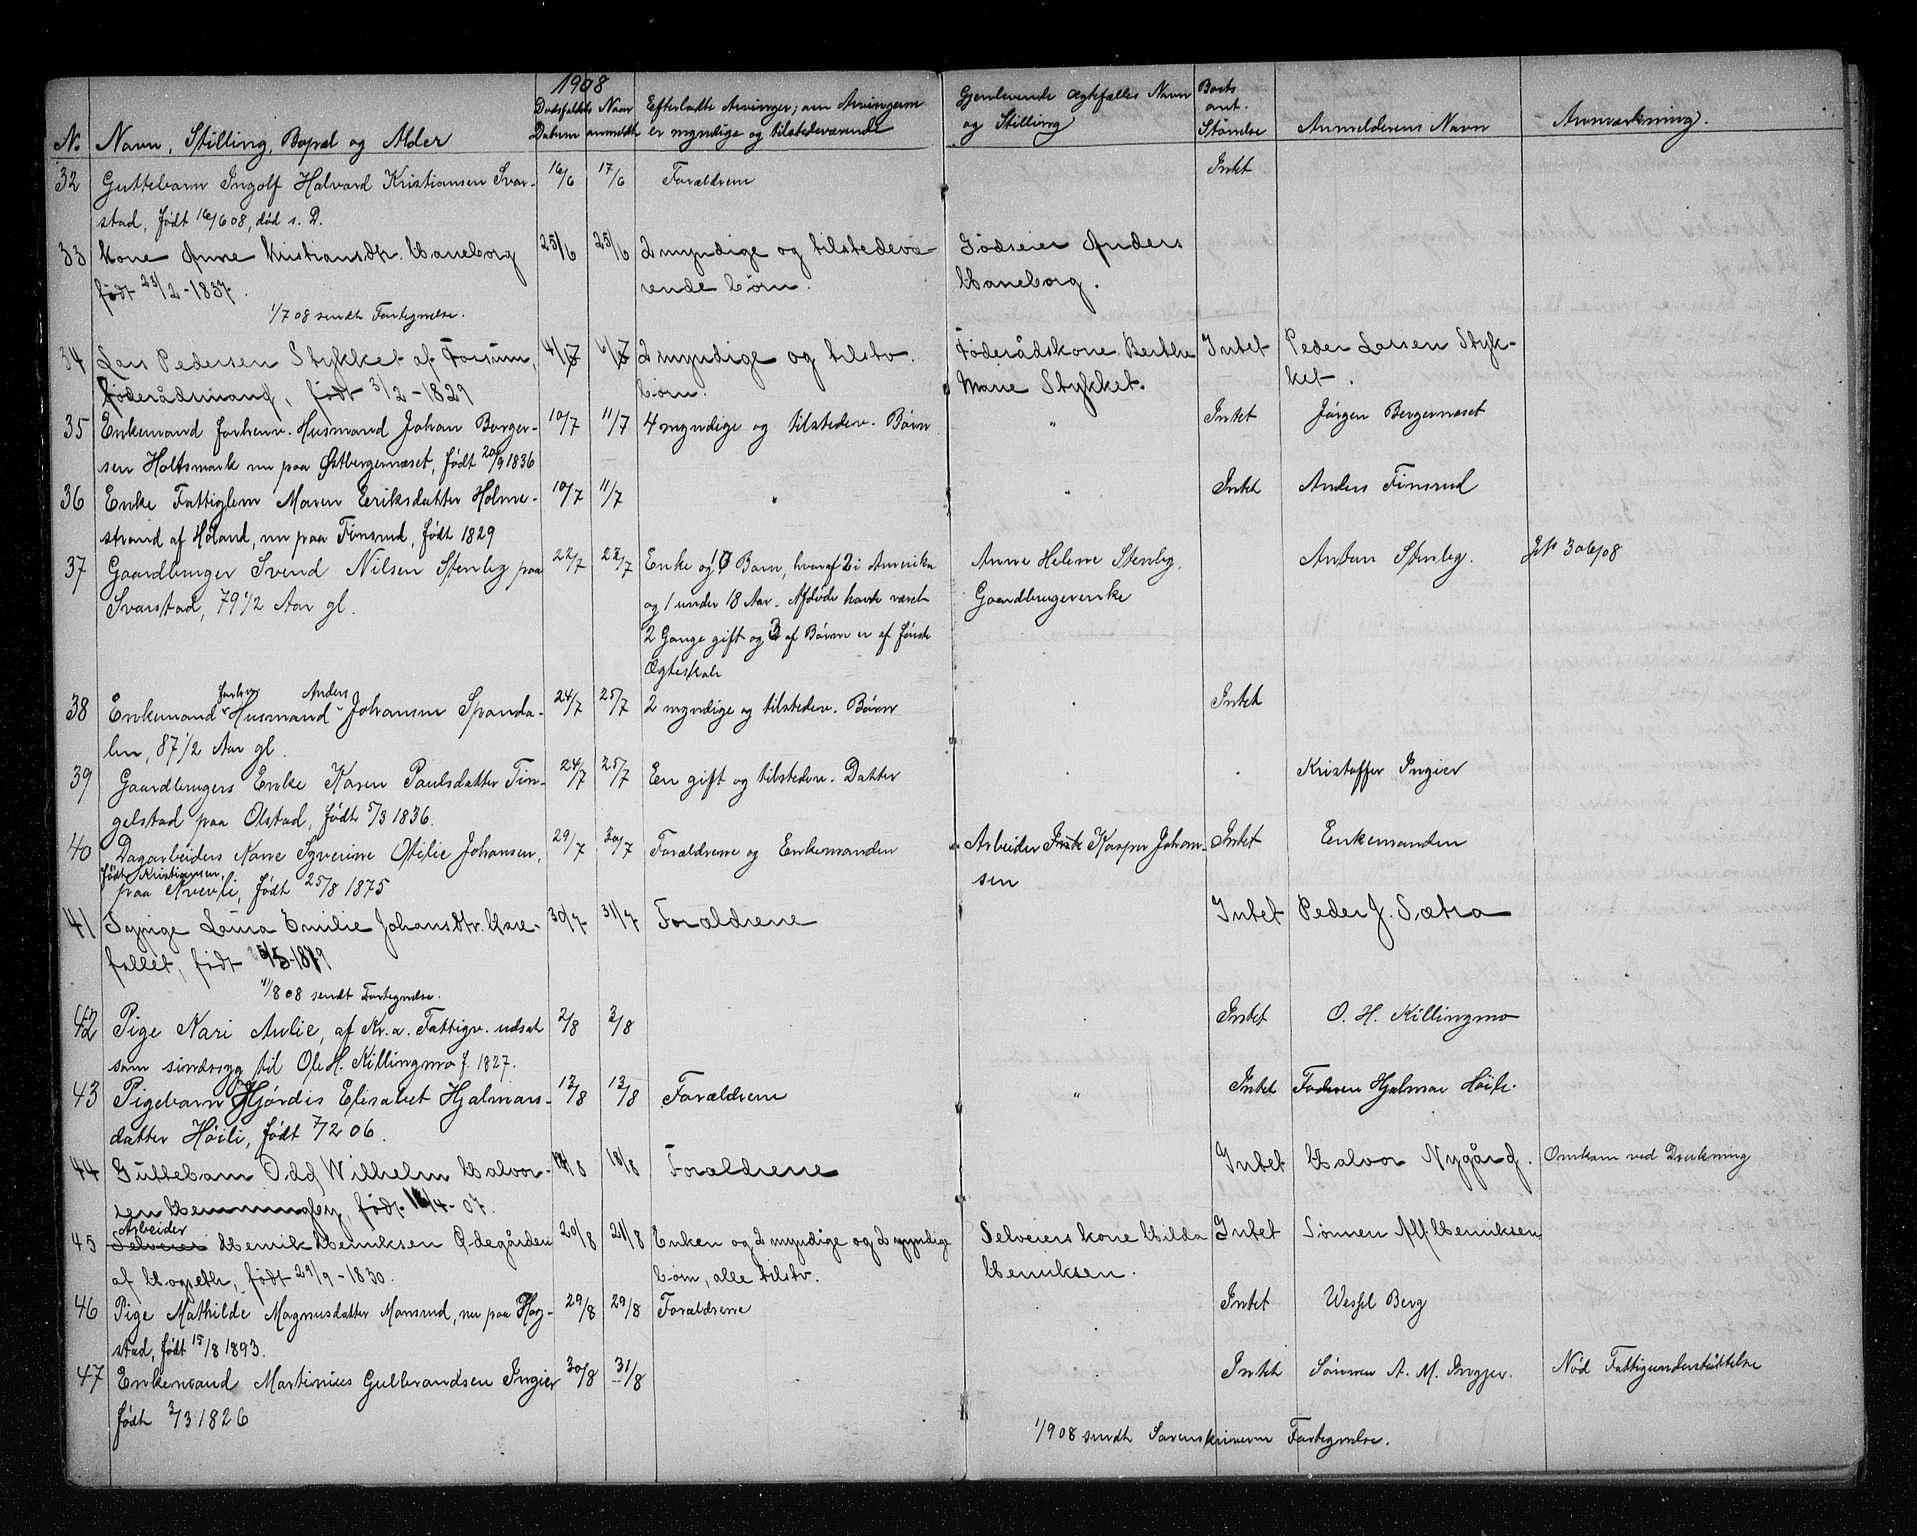 1908
No. Navn, Stilling, Bopæl og Alder Dødsfaldets Datum Naar anmeldt Efterladte Arvinger; om Arvingerne er myndige og tilstedeværende Gjenlevende Ægtefælles Navn og Stilling Boets ant. Størrelse Anmelderens Navn Anmærkning.
32 Guttebarn Ingolf Halvard Kristiansen Svar- 16/6 17/6 Forældrene Intet
stad, født 16/6 08, død s. D.
33 Kone Anne Kristiansdtr. Haneborg 25/6 25/6 2 myndige og tilstedevæ- Godseier Anders
født 23/2-1837. rende børn. Haneborg.
1/7 08 sendt Fortegnelse.
34 Lars Pedersen Stykket af Forsum, 4/7 6/7 2 myndige og tilstv. Føderådskone Berthe Intet Peder Larsen Styk-
føderådsmand, født 3/2-1829 børn. Marie Stykket. ket.
35 Enkemand forhenv. Husmand Johan Borger- 10/7 11/7 4 myndige og tilstedev. Børn " Intet Jørgen Bergernæset
sen Holtsmark nu paa Østbergernæset, født 20/9 1836
36 Enke Fattiglem Maren Eriksdatter Holme- 10/7 11/7 " " Intet Anders Finsrud
strand af Høland, nu paa Finsrud, født 1829
37 Gaardbruger Svend Nilsen Stenby paa 22/7 22/7 Enke og 10 Barn, hvoraf 2 i Amerika Anne Helene Stenby, Anton Stenby. JN 306/08
Svarstad, 79 1/2 Aar gl. og 1 under 18 Aar. Afdøde havde været Gaardbrugerenke
2 Gange gift og 3 af Børnene er af første
Ægteskab
forhenv. Anders
38 Enkemand Husmand Johansen Spanda- 24/7 25/7 2 myndige og tilstedev. Børn " Intet
len, 87 1/2 Aar gl.
39 Gaardbrugers Enke Karen Paulsdatter Tin- 24/7 25/7 En gift og tilstedev. Datter " " Kristoffer Ingier
gelstad paa Olstad, født 5/3 1836.
40 Dagarbeiders Kone Syverine Otilie Johansen, 29/7 30/7 Forældrene og Enkemanden Arbeider Kasper Johan- Intet Enkemanden
født Kristiansen,
paa født 25/8 1875 sen
41 Pige Laura Emilie Johansdtr. 30/7 31/7 Forældrene Intet Peder J. Sætra
fallet, født
1/8 08 sendt Fortegnelse.
42 Pige Kari Aulie, af Kr.a. Fattigv. udsat 2/8 3/8 Intet O. H. Killingmo
som sindssyg til Ole H. Killingmo f. 1827.
43 Pigebarn Hjørdis Elisabet Hjalmars- 12/8 12/8 Forældrene " Intet Faderen Hjalmar Höili.
datter Höili, født 7/2 06.
44 Guttebarn Odd Wilhelm Halvor- 18/8 Forældrene Intet Halvor Nygård. Omkom ved Drukning
sen Hemmingby, født 16/4-07.
Arbeider
45 Selveier Henrik Henriksen Ødegården 20/8 21/8 Enken og 2 myndige og 2 umyndige Selveiers kone Hilda Intet Sønnen Alf Henriksen
af Hogseth, født 29/9-1830. børn, alle tilstv. Henriksen.
46 Pige Mathilde Magnusdatter Monsrud, nu paa Hog- 29/8 29/8 Forældrene " Intet Wessel Berg
stad, født 15/8 1893.
47 Enkemand Martinius Gulbrandsen Ingier 30/8 31/8 Intet Sønnen A. M. Ingjer. Nød Fattigunderstøttelse
født 2/3 1826
1/9 08 sendt Sorenskriveren Fortegnelse.